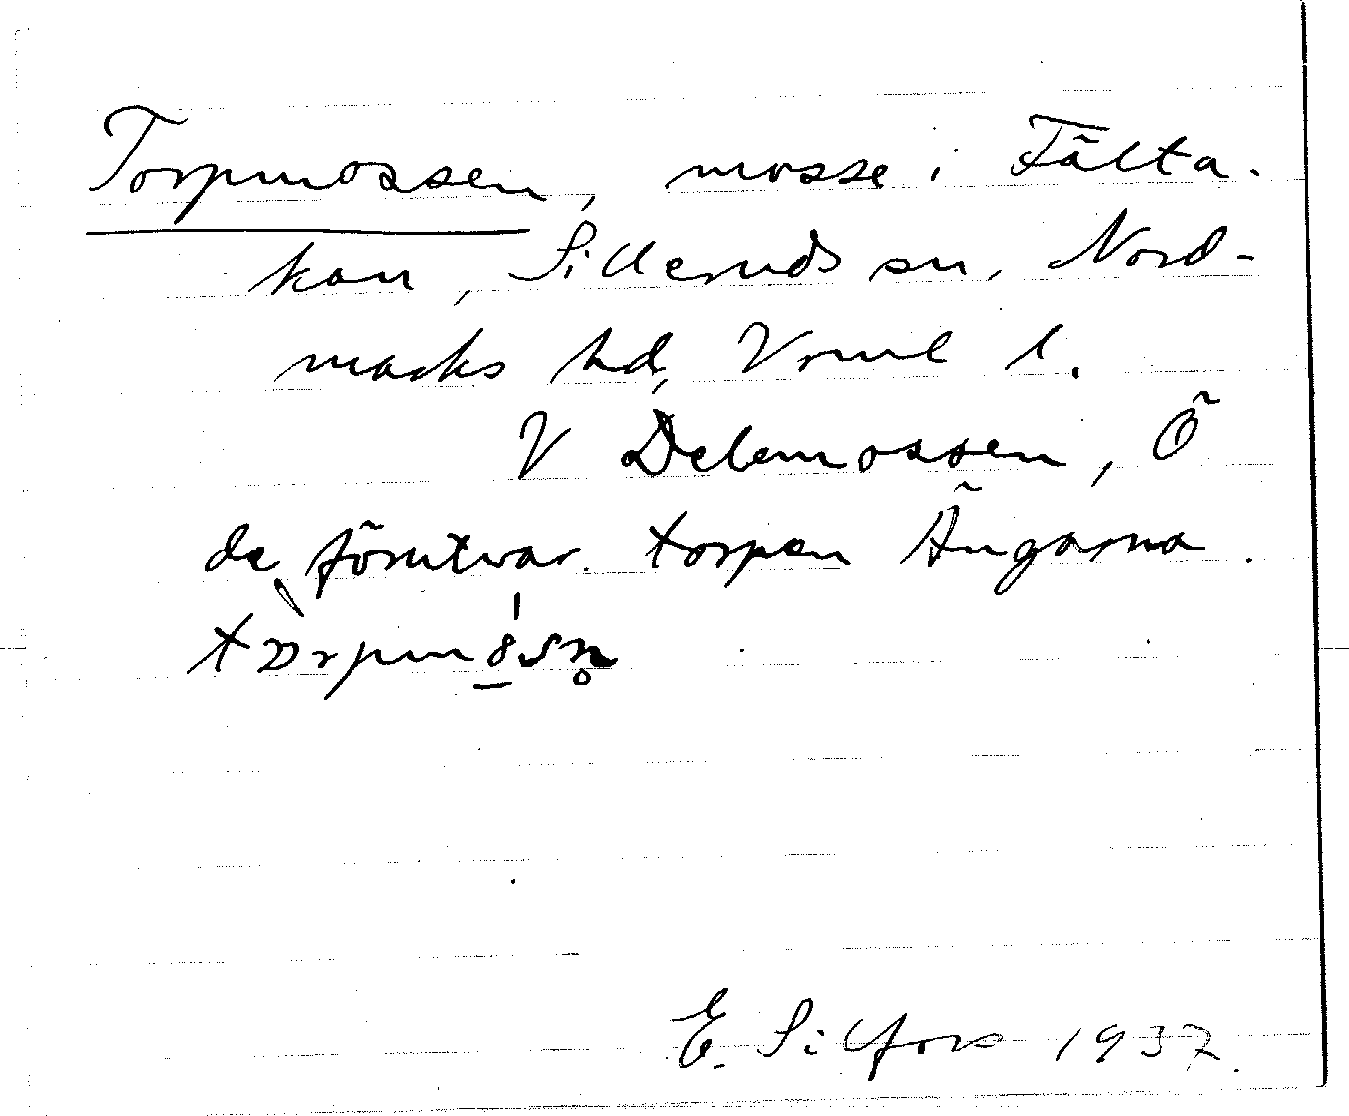 Torpmossen, mosse i Fälta.
kan, Silleruds sn, Nord-
marks hd, Vrml l.
V Delemossen, Ö
de förutvar. torpen Ängarna.
E. Silfors 1937.